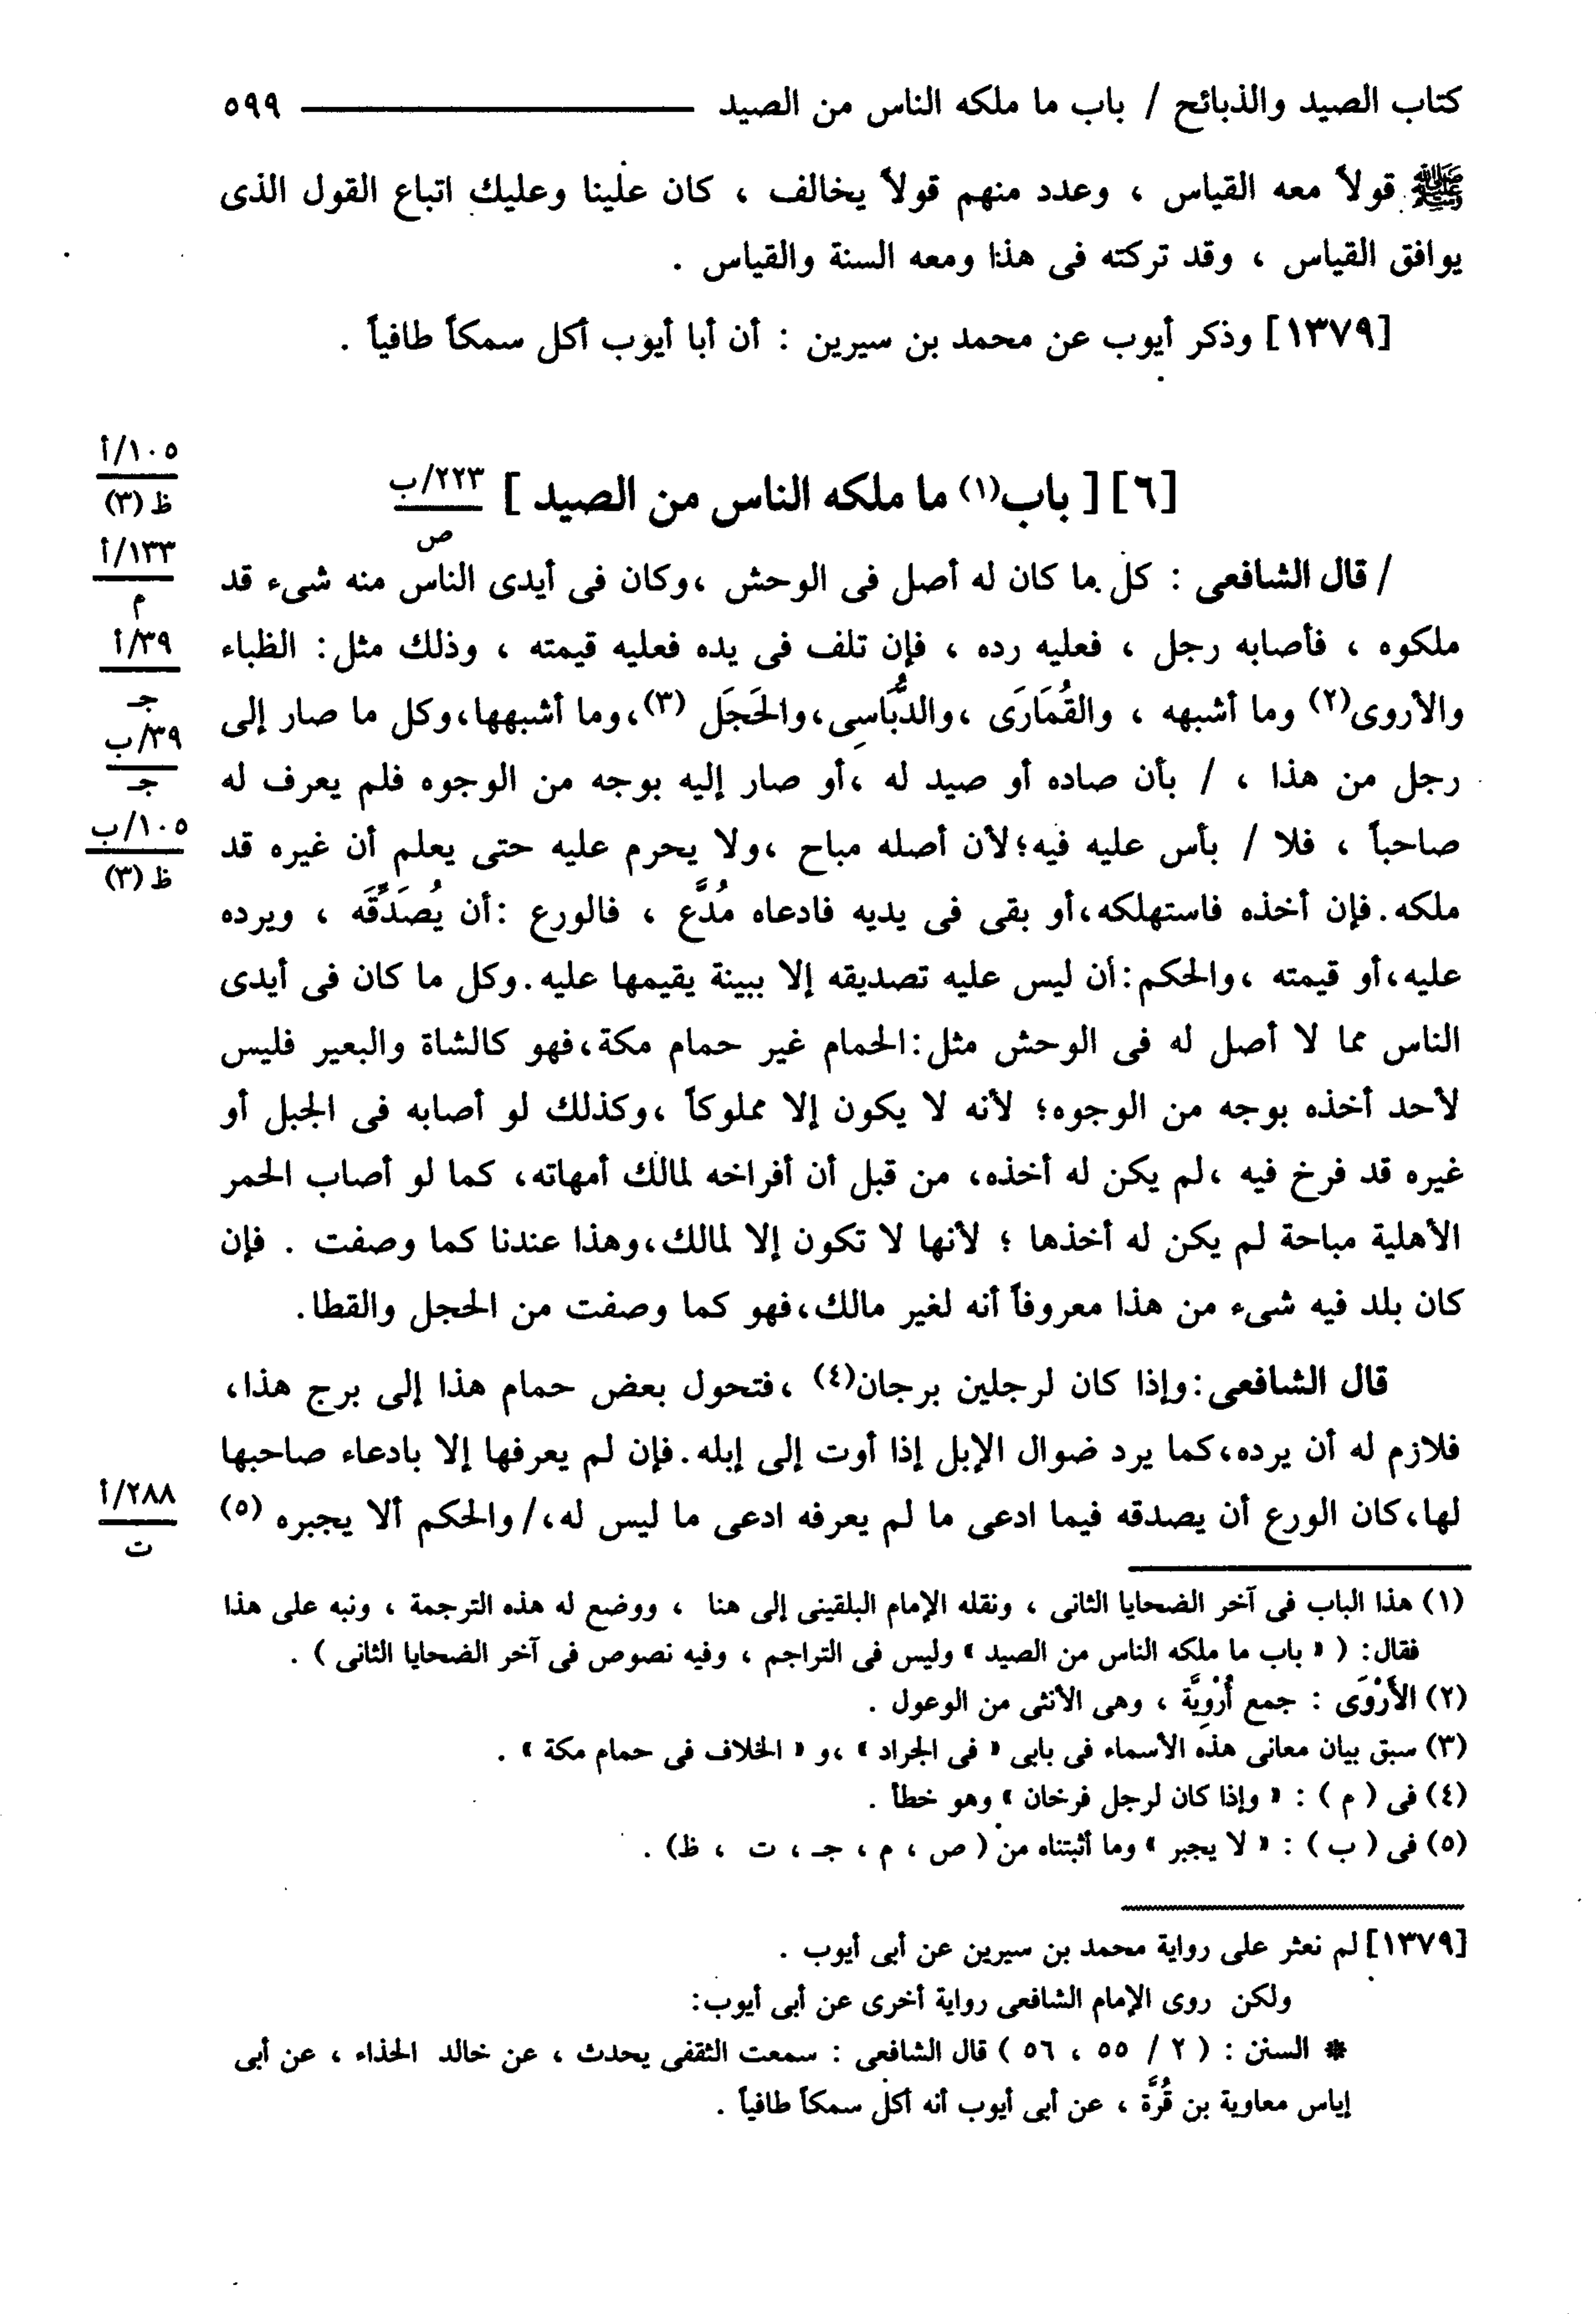 كتاب الصيد والذبائح / باب ما ملكه الناس من الصيد ٥٩٩
ﷺ قولاً معه القياس ، وعدد منهم قولاً يخالف ، كان علينا وعليك اتباع القول الذى
يوافق القياس ، وقد تركته فى هذا ومعه السنة والقياس .
[١٣٧٩] وذكر أيوب عن محمد بن سيرين : أن أبا أيوب أكل سمكاً طافياً .
١٠٥/أ
ظ (٣)
[٦] [ باب(١) ما ملكه الناس من الصيد ] ٢٢٣/ب
ص
١٣٣/أ
م
/ قال الشافعى : كل ما كان له أصل فى الوحش ،وكان فى أيدى الناس منه شىء قد
٣٩/أ
جـ
ملكوه ، فأصابه رجل ، فعليه رده ، فإن تلف فى يده فعليه قيمته ، وذلك مثل: الظباء
والأروى(٢) وما أشبهه ، والقُمَارَى ،والدُّبَاسِى،والحَجَل (٣)،وما أشبهها،وكل ما صار إلى
٣٩/ب
جـ
رجل من هذا ، / بأن صاده أو صيد له ،أو صار إليه بوجه من الوجوه فلم يعرف له
١٠٥/ب
ظ (٣)
صاحباً ، فلا / بأس عليه فيه؛لأن أصله مباح ،ولا يحرم عليه حتى يعلم أن غيره قد
ملكه. فإن أخذه فاستهلكه،أو بقى فى يديه فادعاه مُدَّع ، فالورع :أن يُصَدِّقَه ، ويرده
عليه،أو قيمته ،والحكم:أن ليس عليه تصديقه إلا ببينة يقيمها عليه.وكل ما كان فى أيدى
الناس مما لا أصل له فى الوحش مثل:الحمام غير حمام مكة،فهو كالشاة والبعير فليس
لأحد أخذه بوجه من الوجوه؛ لأنه لا يكون إلا مملوكاً ،وكذلك لو أصابه فى الجبل أو
غيره قد فرخ فيه ،لم يكن له أخذه، من قبل أن أفراخه لمالك أمهاته، كما لو أصاب الحمر
الأهلية مباحة لم يكن له أخذها ؛ لأنها لا تكون إلا لمالك،وهذا عندنا كما وصفت . فإن
كان بلد فيه شىء من هذا معروفاً أنه لغير مالك،فهو كما وصفت من الحجل والقطا.
قال الشافعى:وإذا كان لرجلين برجان(٤) ،فتحول بعض حمام هذا إلى برج هذا،
فلازم له أن يرده،كما يرد ضوال الإبل إذا أوت إلى إبله.فإن لم يعرفها إلا بادعاء صاحبها
لها،كان الورع أن يصدقه فيما ادعى ما لم يعرفه ادعى ما ليس له،/والحكم ألا يجبره (٥)
٢٨٨/أ
ت
(١) هذا الباب فى آخر الضحايا الثانى ، ونقله الإمام البلقينى إلى هنا ، ووضع له هذه الترجمة ، ونبه على هذا
فقال: ( « باب ما ملكه الناس من الصيد » وليس فى التراجم ، وفيه نصوص فى آخر الضحايا الثانى ) .
(٢) الأَرْوَى : جمع أُرْوِيَّة ، وهى الأنثى من الوعول .
(٣) سبق بيان معانى هذه الأسماء فى بابى « فى الجراد » ،و « الخلاف فى حمام مكة » .
(٤) فى ( م ) : « وإذا كان لرجل فرخان » وهو خطأ .
(٥) فى ( ب ) : « لا يجبر » وما أثبتناه من ( ص ، م ، جـ ، ت ، ظ) .
[١٣٧٩] لم نعثر على رواية محمد بن سيرين عن أبى أيوب .
ولكن روى الإمام الشافعى رواية أخرى عن أبى أيوب:
* السنن : ( ٢ / ٥٥ ، ٥٦ ) قال الشافعى : سمعت الثقفى يحدث ، عن خالد الحذاء ، عن أبى
إياس معاوية بن قُرَّة ، عن أبى أيوب أنه أكل سمكاً طافياً .